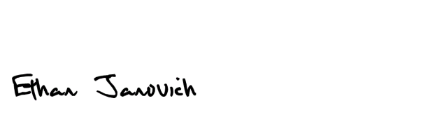 Ethan Janovich